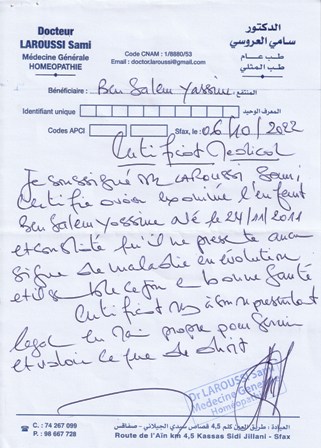 Docteur
LAROUSSI Sami
Médecine Générale
HOMEOPATHIE
Code CNAM : 1/8880/53
Email : doctor.laroussi@gmail.com
الدكتور
سامي العروسي
طب عام
طب المثلي
Bénéficiaire : Ben Salem Yassine المنتفع
Identifiant unique المعرف الوحيد
Codes APCI Sfax, le : 06/10/2022
Certificat Medical
Je soussigné Dr LAROUSSI Sami,
Certifie avoir examiné l'enfant
Ben Salem Yassine né le 24/11/2011
et constaté qu'il ne présente aucun
signe de maladie en évolution
et il semble en bonne santé
Certificat remis à son représentant
légal en main propre pour servir
et valoir ce que de droit
Dr LAROUSSI Sami
Médecine Générale
Homéopathie
C. : 74 267 099
P. : 98 667 728
العيادة : طريق العين كلم 4,5 قصاص سيدي الجيلاني - صفاقس
Route de l'Aïn km 4,5 Kassas Sidi Jillani - Sfax